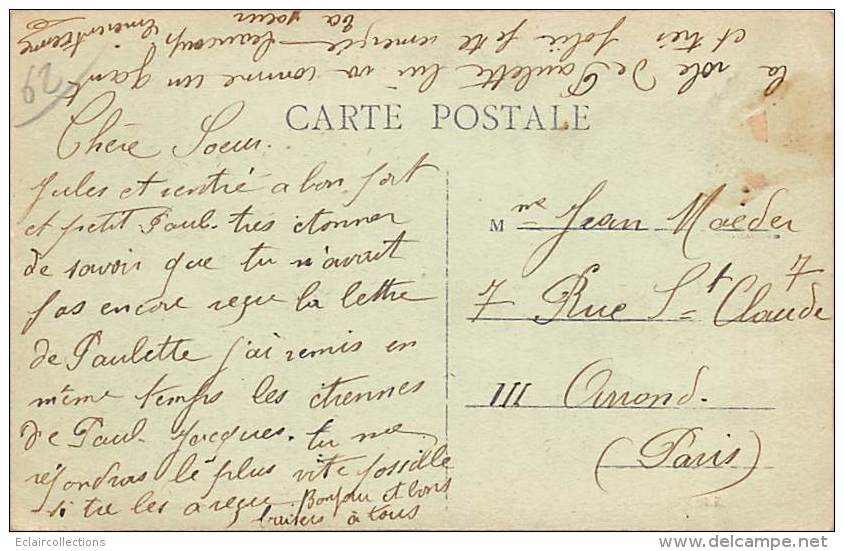 CARTE POSTALE
Chère Soeur.
Jules et rentré a bon port
et petit Paul. très etonner
de savoir que tu n'avait
pas encore reçue la lettre
de Paulette j'ai remis en
même temps les etrennes
de Paul. Jacques. tu me
répondras le plus vite possible
si tu les a reçue Bonjour et bons
baisers à tous
la robe de Paulette lui va comme un gant
et très jolie je te remercie beaucoup
ta soeur
M me Jean Maeder
7 Rue St Claude 7
III Arrond.
(Paris)
29
Eclaircollections
www.delcampe.net